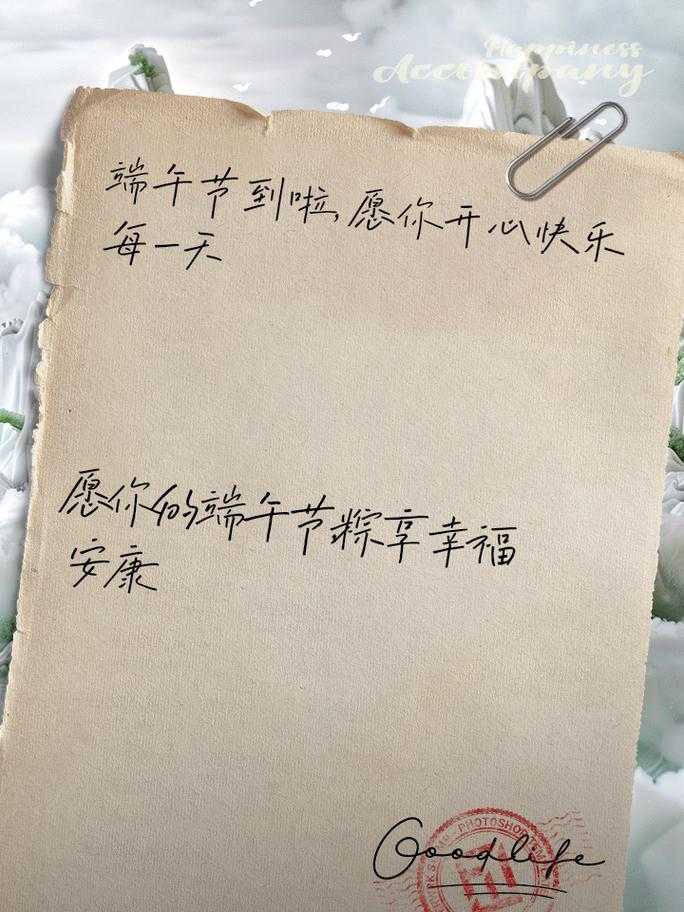 Happiness
Accompany
端午节到啦,愿你开心快乐
每一天
愿你的端午节粽享幸福
安康
Goodlife